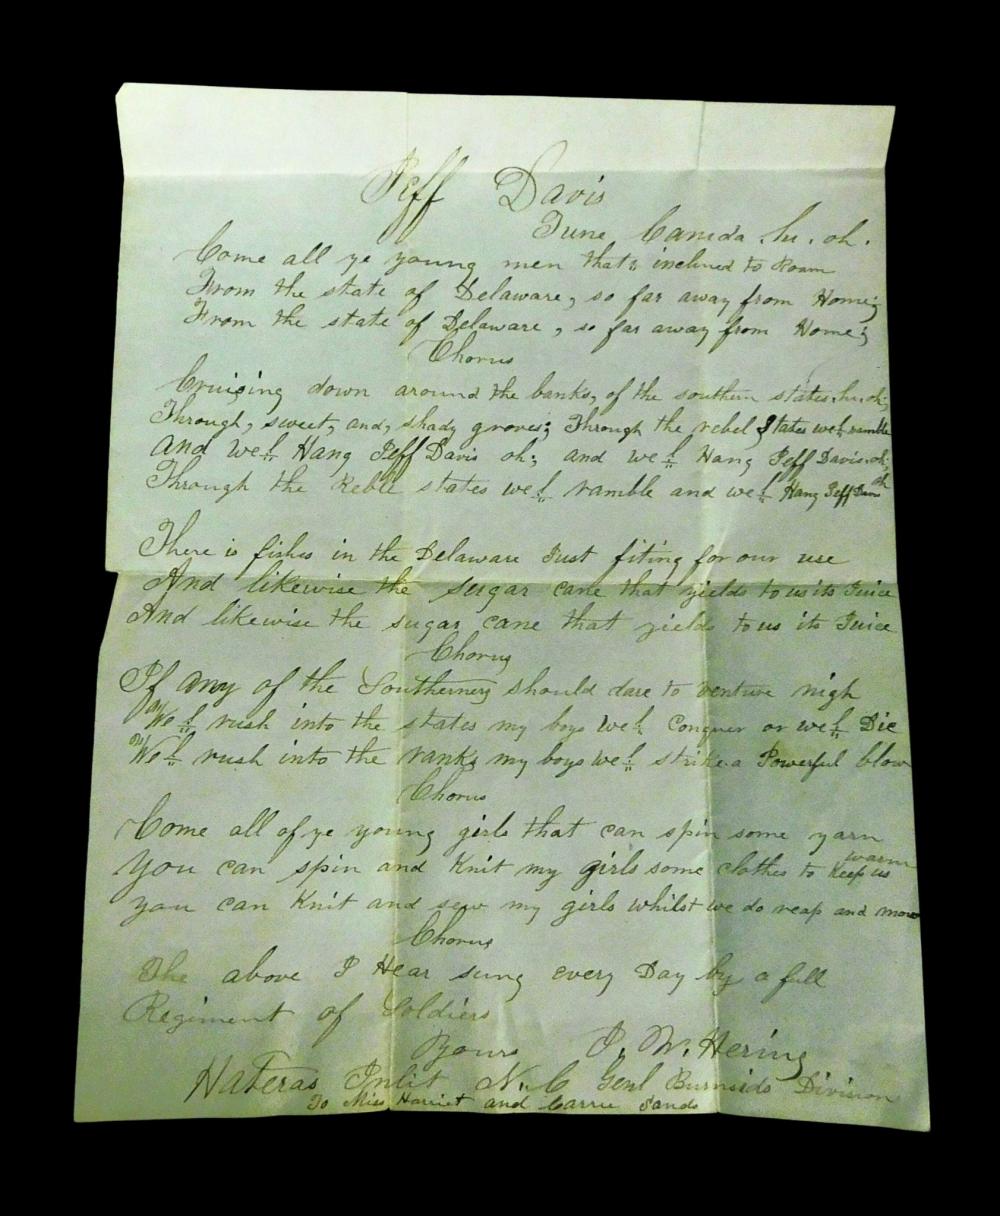 Jeff Davis
Tune Canada .hi. oh.
Come all ye young men that is inclined to Roam
From the state of Delaware, so far away from Home;
From the state of Delaware, so far away from Home;
Chorus
Cruising down around the banks, of the southern states.hi.oh;
Through, sweet, and, shady groves; Through the rebel States we'l ramble
And we'l Hang Jeff Davis oh; and we'l Hang Jeff Davis.oh;
Through the Reble states we'l ramble and we'l Hang Jeff Davis oh
There is fishes in the Delaware Just fiting for our use
And likewise the sugar cane that yields to us its Juice
And likewise the sugar cane that yields to us its Juice
Chorus
If any of the Southerners should dare to venture nigh
We'l rush into the states my boys we'l Conquer or we'l Die
We'l rush into the ranks my boys we'l strike a Powerful blow
Chorus
Come all of ye young girls that can spin some yarn
You can spin and Knit my girls some clothes to Keep us warm
you can Knit and sew my girls whilst we do reap and mow
Chorus
The above I Hear sung every Day by a full
Regiment of Soldiers
Yours J. W. Hering
Hateras Inlit N.C Genl Burnside Division
To Miss Harriet and Carrie Sands